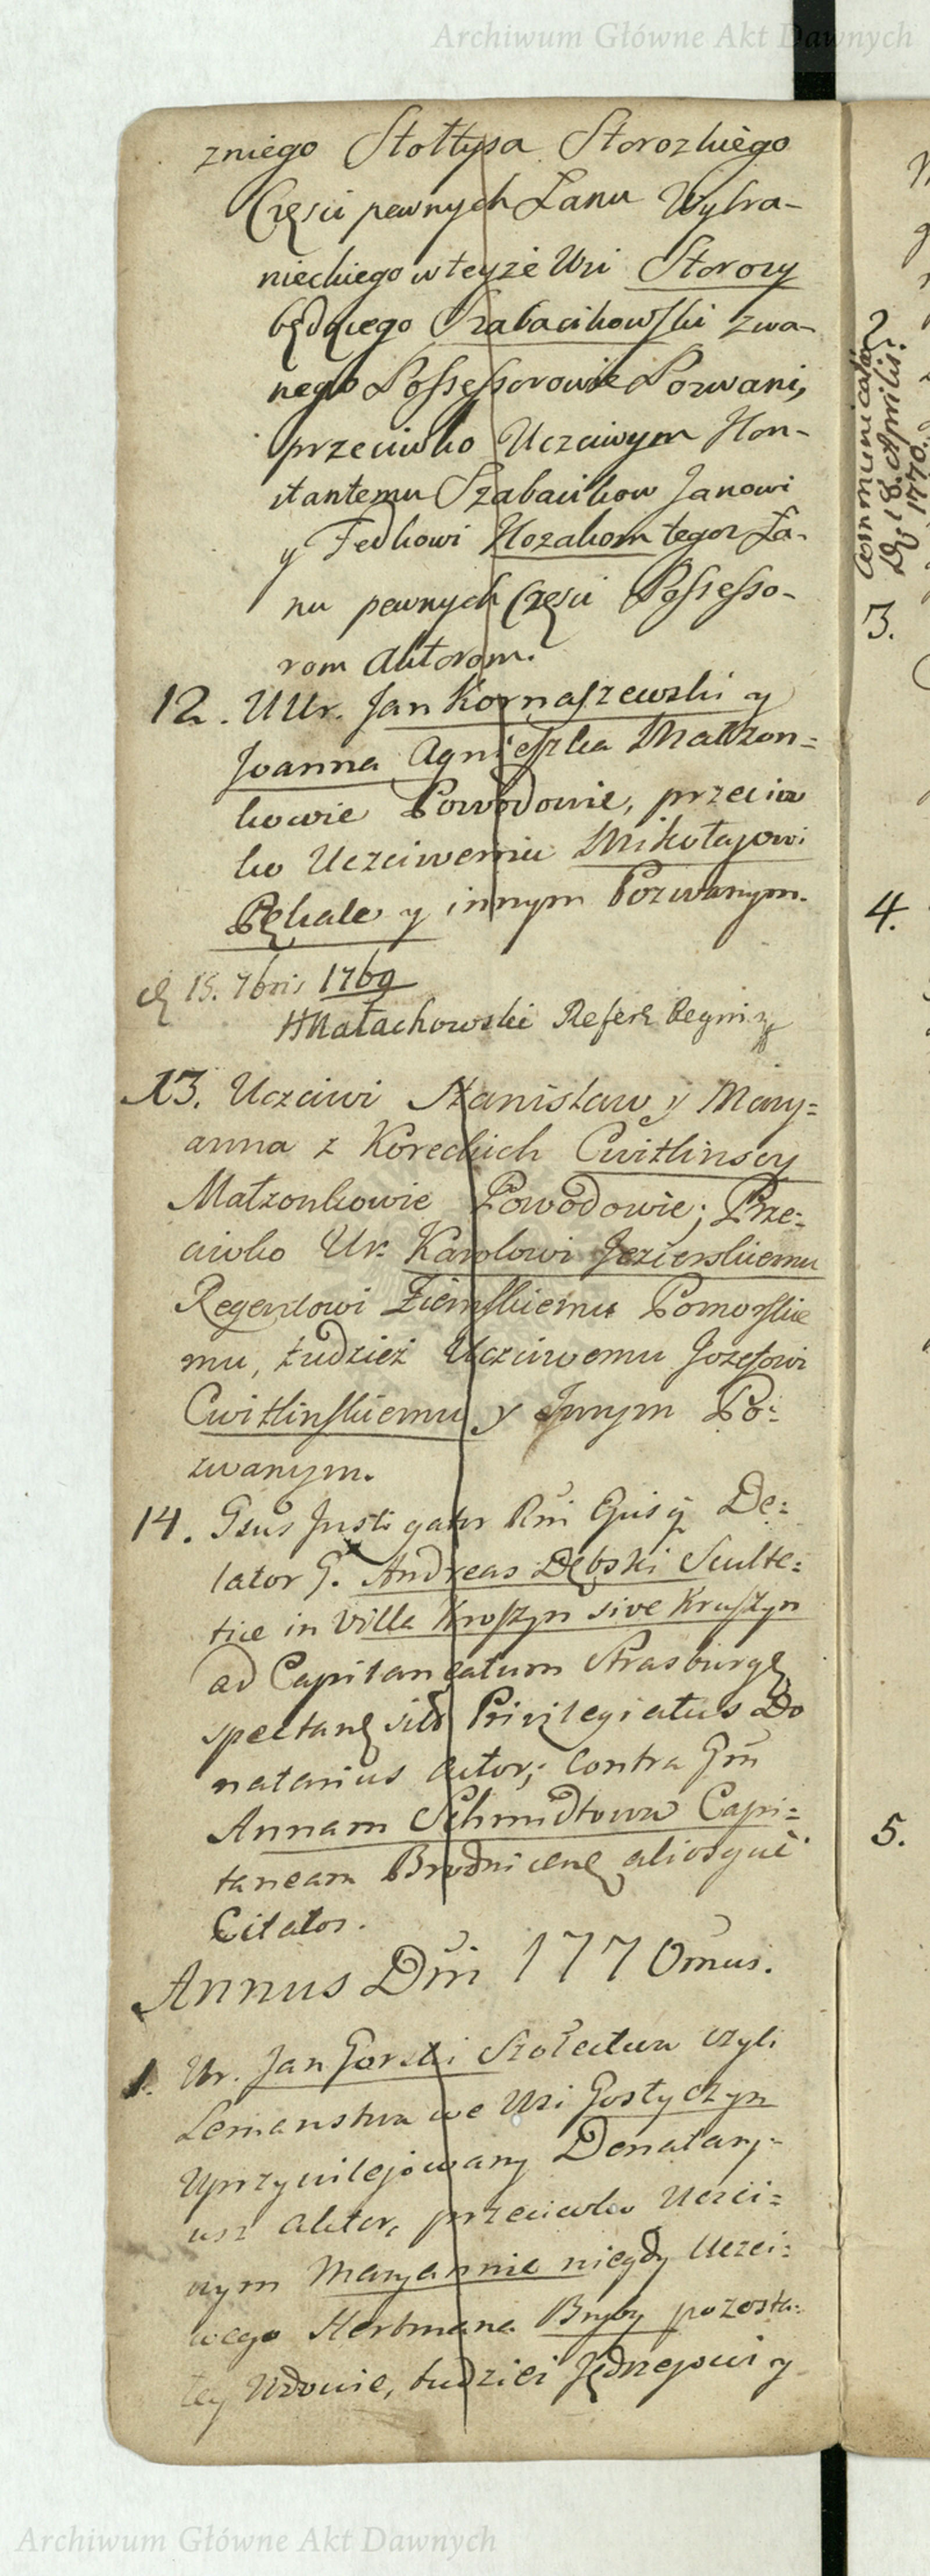 Archiwum Główne Akt Dawnych
zniego Stołtysa Storozkiego
Części pewnych Łanu Wybra-
nieckiego w teyże Wsi Storozy
będącego Szabacikowski zwa-
nego Possessorowie Pozwani,
przeciwko Uczciwym Kon-
stantemu Szabacikow Janowi
y Fedkowi Kozakom tegoz Ła-
nu pewnych Części Possesso-
rom Aktorom.
12. UUr. Jan Kornaszewski y
Joanna Agnieszka Małżon=
kowie Powodowie, przeciw
ko Uczciwemu Mikołajowi
Pękale y innym Pozwanym.
15. 7bris 1769
Małachowski Refer. Regni
13. Uczciwi Stanisław y Mary=
anna z Koreckich Cwitlinscy
Małżonkowie Powodowie; Prze=
ciwko Ur. Karolowi Jezierskiemu
Regentowi Ziemskiemu Pomorskie
mu, tudzież Uczciwemu Jozefowi
Cwitlinskiemu y Innym Po=
zwanym.
14. Gsus Instigator Rni Ejusq De=
lator G. Andreas Dębski Sculte=
tiae in Villa Kroszyn sive Kruszyn
ad Capitaneatum Strasburg
spectan sitt Privilegiatus Do
natarius Actor; Contra Gm
Annam Schmidtowa Capi=
taneam Brodnicen aliosque
Citatos.
Annus Dni 1770mus.
1. Ur. Jan Gorski Szołectwa czyli
Lemanstwa we Wsi Gostyczyn
Uprzywilejowany Donatary-
usz Aktor, przeciwko Uczci=
wym Maryannie niegdy Uczci=
wego Hertmana Bryby pozosta=
łey Wdowie, tudzież Jędrzejowi y
Communicata
D. 18. Aprilis
1770.
3.
4.
5.
Archiwum Główne Akt Dawnych